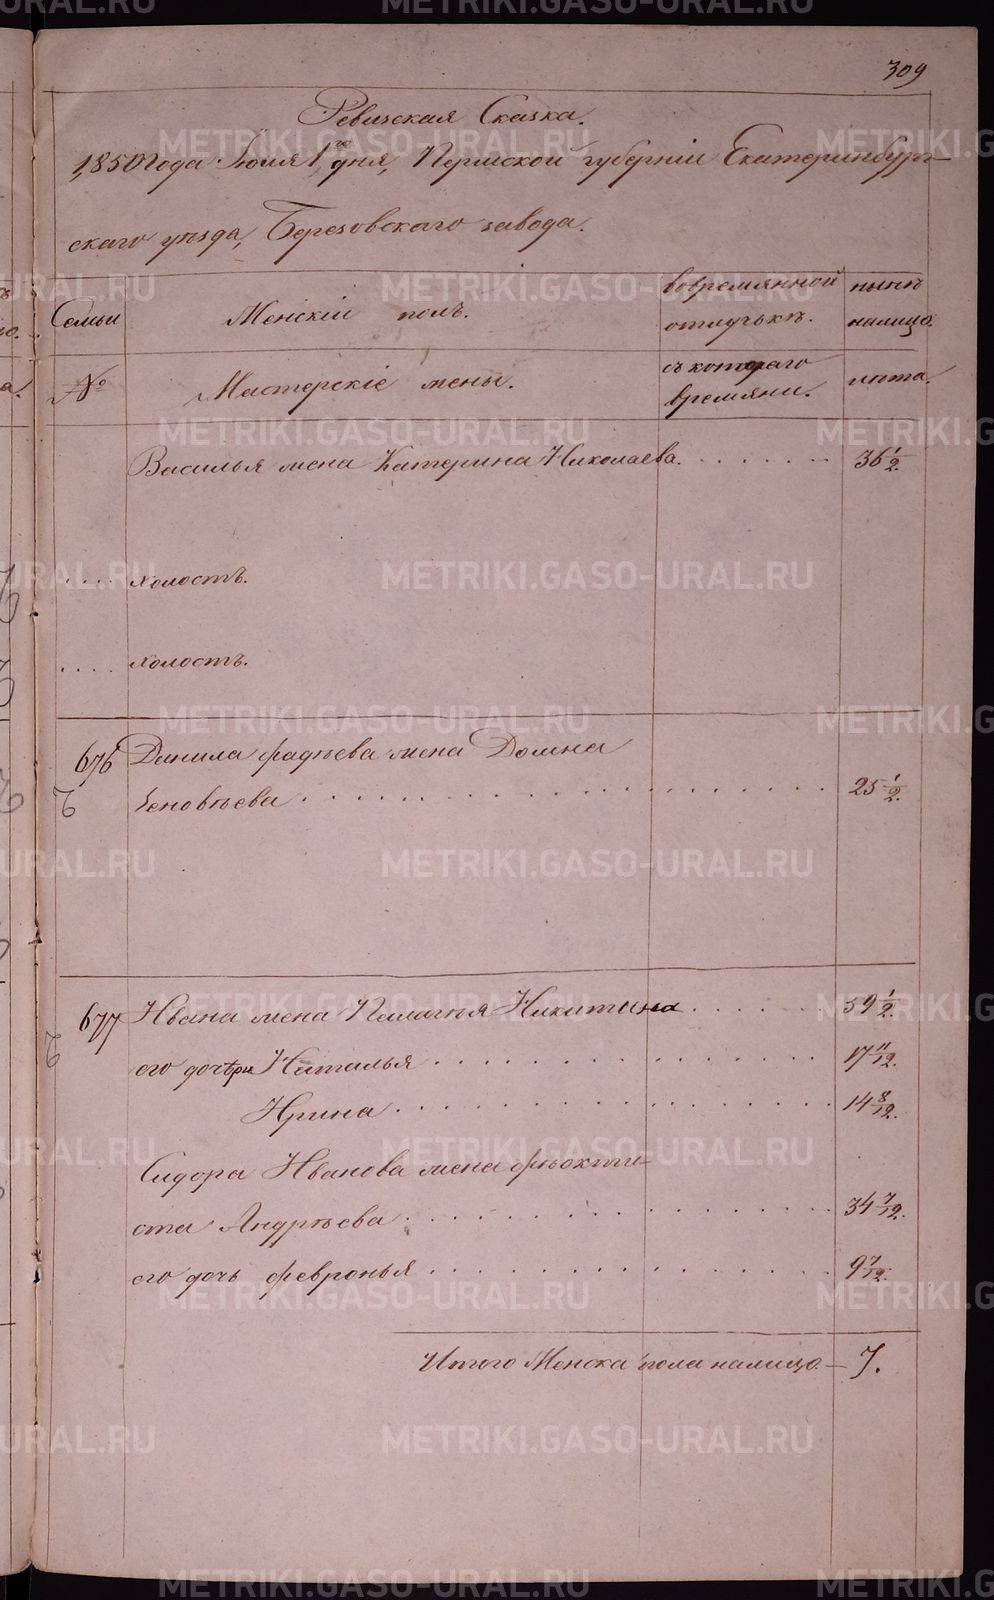 309
Ревизская Сказка.
1850 года Июля 1го дня, Пермской губерніи Екатеринбург-
скаго уѣзда, Березовскаго завода.
Семьи
Женскій полъ.
вовремянной
отлучькѣ.
нынѣ
налицо.
№
Мастерскіе жены.
съ котораго
времяни.
лѣта.
Василья жена Катерина Николаева. 36 1/2.
.... холостъ.
.... холостъ.
676 Данила Фадѣева жена Домна
Зеновѣева 25 1/2.
677 Ивана жена Палагѣя Никитина 59 1/2.
его дочѣри Наталья 17 11/12.
Ирина 14 8/12.
Сидора Иванова жена Фѣокти-
ста Андрѣева 34 7/12.
его дочь Февронья 9 7/12.
Итого Женска пола налицо — 7.
METRIKI.GASO-URAL.RU